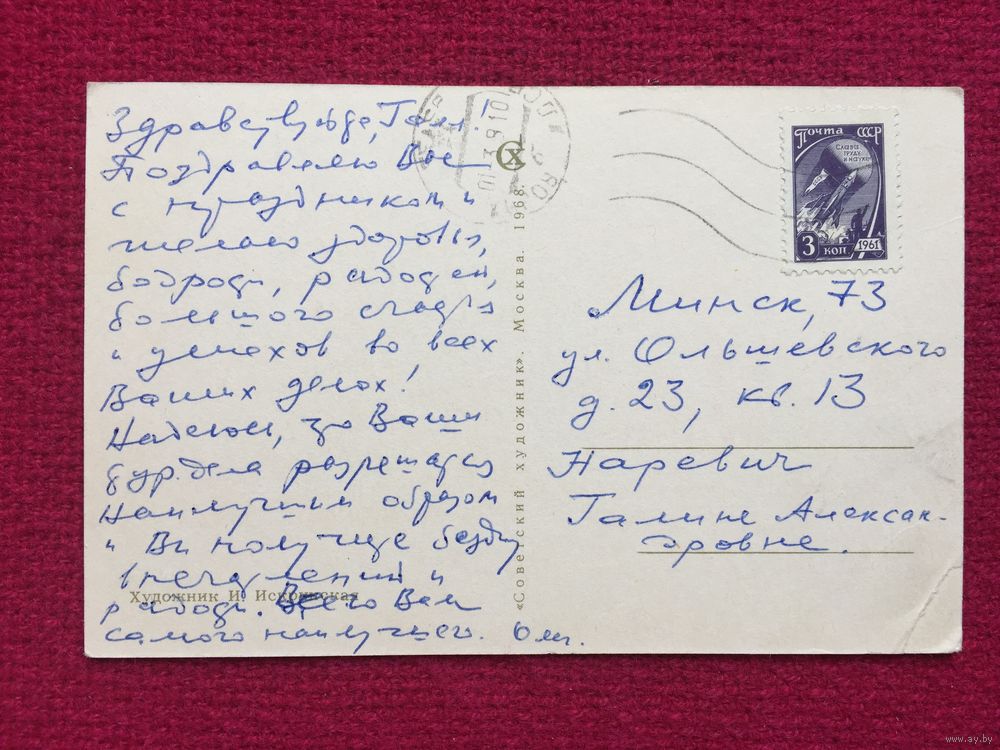 Здравствуйте, Галя!
Поздравляю Вас
с праздником и
желаю здоровья,
бодрости, радостей,
большого счастья
и успехов во всех
Ваших делах!
Надеюсь, что Ваши
дела разрешатся
наилучшим образом
и Вы получите бездну
впечатлений и
радости. Всего Вам
самого наилучшего.
Художник И. Искринская
«Советский художник». Москва. 1968.
Почта СССР
Слава
труду
и науке
3 коп 1961
Минск, 73
ул. Ольшевского
д. 23, кв. 13
Наревич
Галине Алексан-
дровне.
www.ay.by